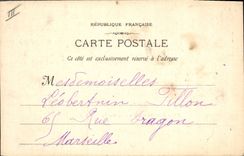 III
RÉPUBLIQUE FRANÇAISE
CARTE POSTALE
Ce côté est exclusivement réservé à l'adresse
Mesdemoiselles
Pillon
Rue Dragon
Marseille